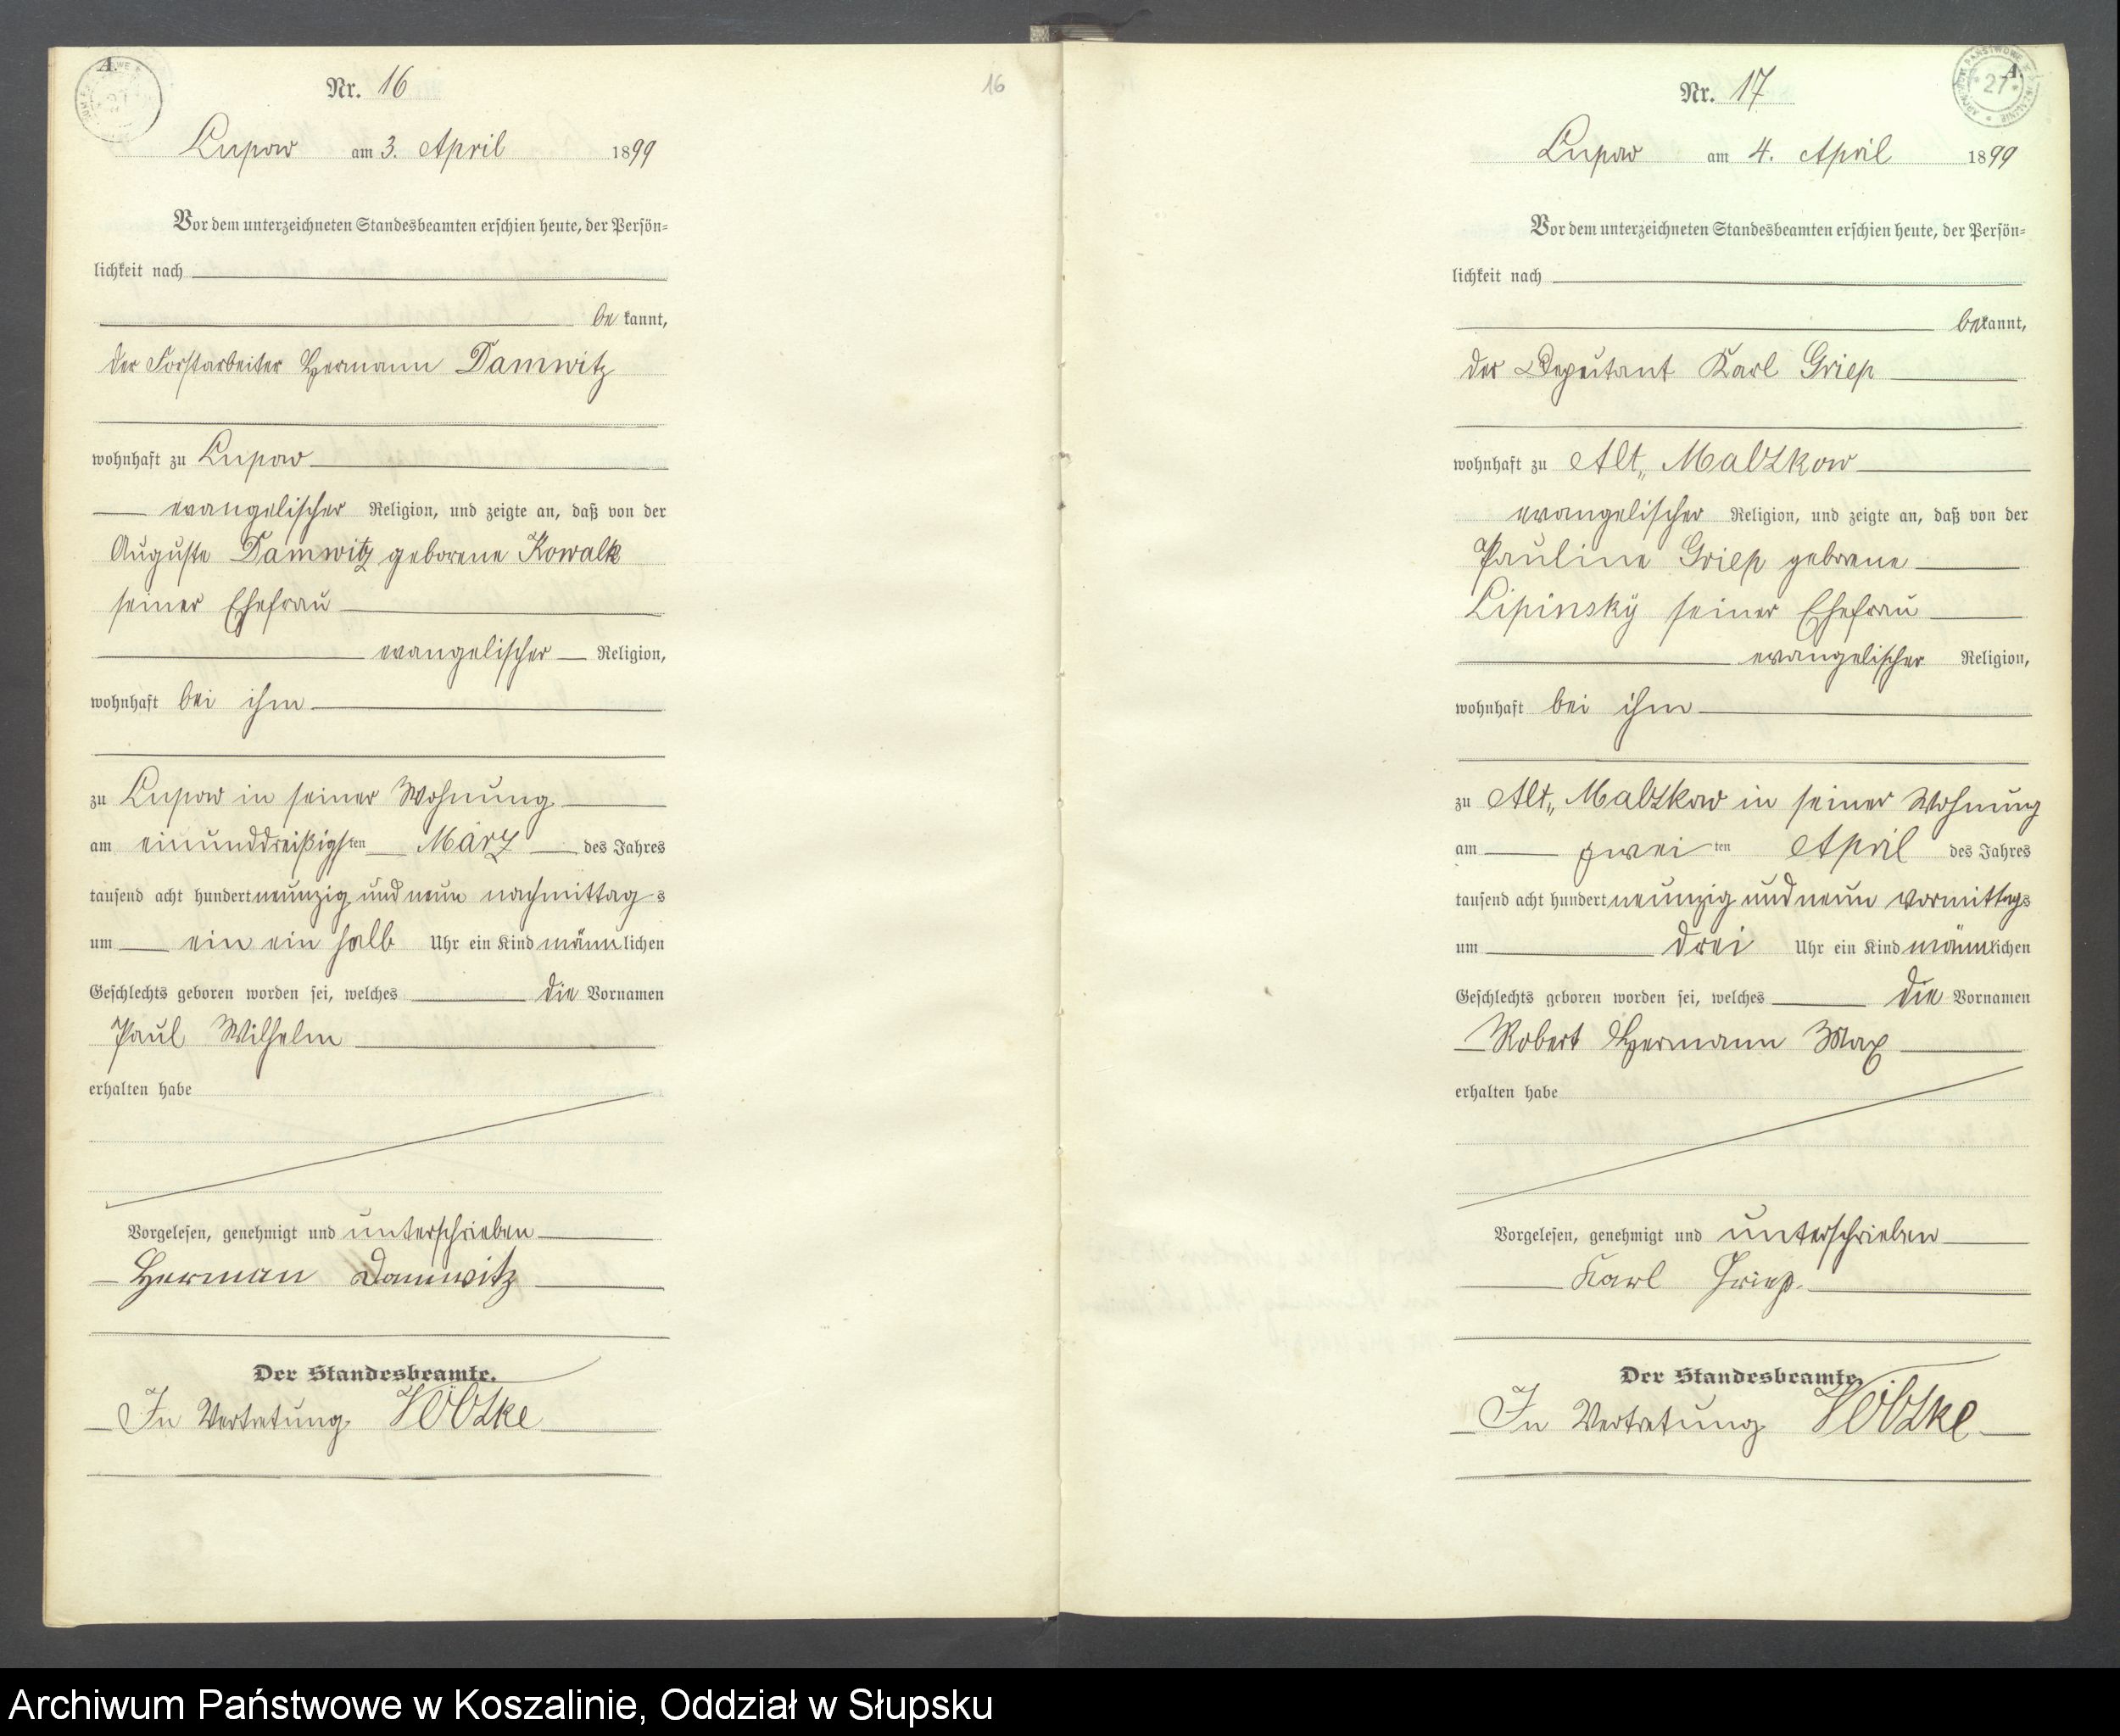 A.
Nr. 16
Lupow am 3. April 1899
Vor dem unterzeichneten Standesbeamten erschien heute, der Persön-
lichkeit nach
be kannt,
der Forstarbeiter Hermann Damwitz
wohnhaft zu Lupow
evangelischer Religion, und zeigte an, daß von der
Auguste Damwitz geborene Kowalk
seiner Ehefrau
evangelischer Religion,
wohnhaft bei ihm
zu Lupow in seiner Wohnung
am einunddreißigsten März des Jahres
tausend acht hundert neunzig und neun nachmittags
um ein ein halb Uhr ein Kind männlichen
Geschlechts geboren worden sei, welches die Vornamen
Paul Wilhelm
erhalten habe
Vorgelesen, genehmigt und unterschrieben
Herman Damwitz
Der Standesbeamte.
In Vertretung
16
A.
27
Nr. 17
Lupow am 4. April 1899
Vor dem unterzeichneten Standesbeamten erschien heute, der Persön-
lichkeit nach
bekannt,
der Deputant Karl Griep
wohnhaft zu Alt„ Malzkow
evangelischer Religion, und zeigte an, daß von der
Pauline Griep geborene
Lipinsky seiner Ehefrau
evangelischer Religion,
wohnhaft bei ihm
zu Alt„ Malzkow in seiner Wohnung
am zweiten April des Jahres
tausend acht hundert neunzig und neun vormittags
um drei Uhr ein Kind männlichen
Geschlechts geboren worden sei, welches die Vornamen
Robert Hermann Max
erhalten habe
Vorgelesen, genehmigt und unterschrieben
Karl Griep.
Der Standesbeamte
In Vertretung
Archiwum Państwowe w Koszalinie, Oddział w Słupsku